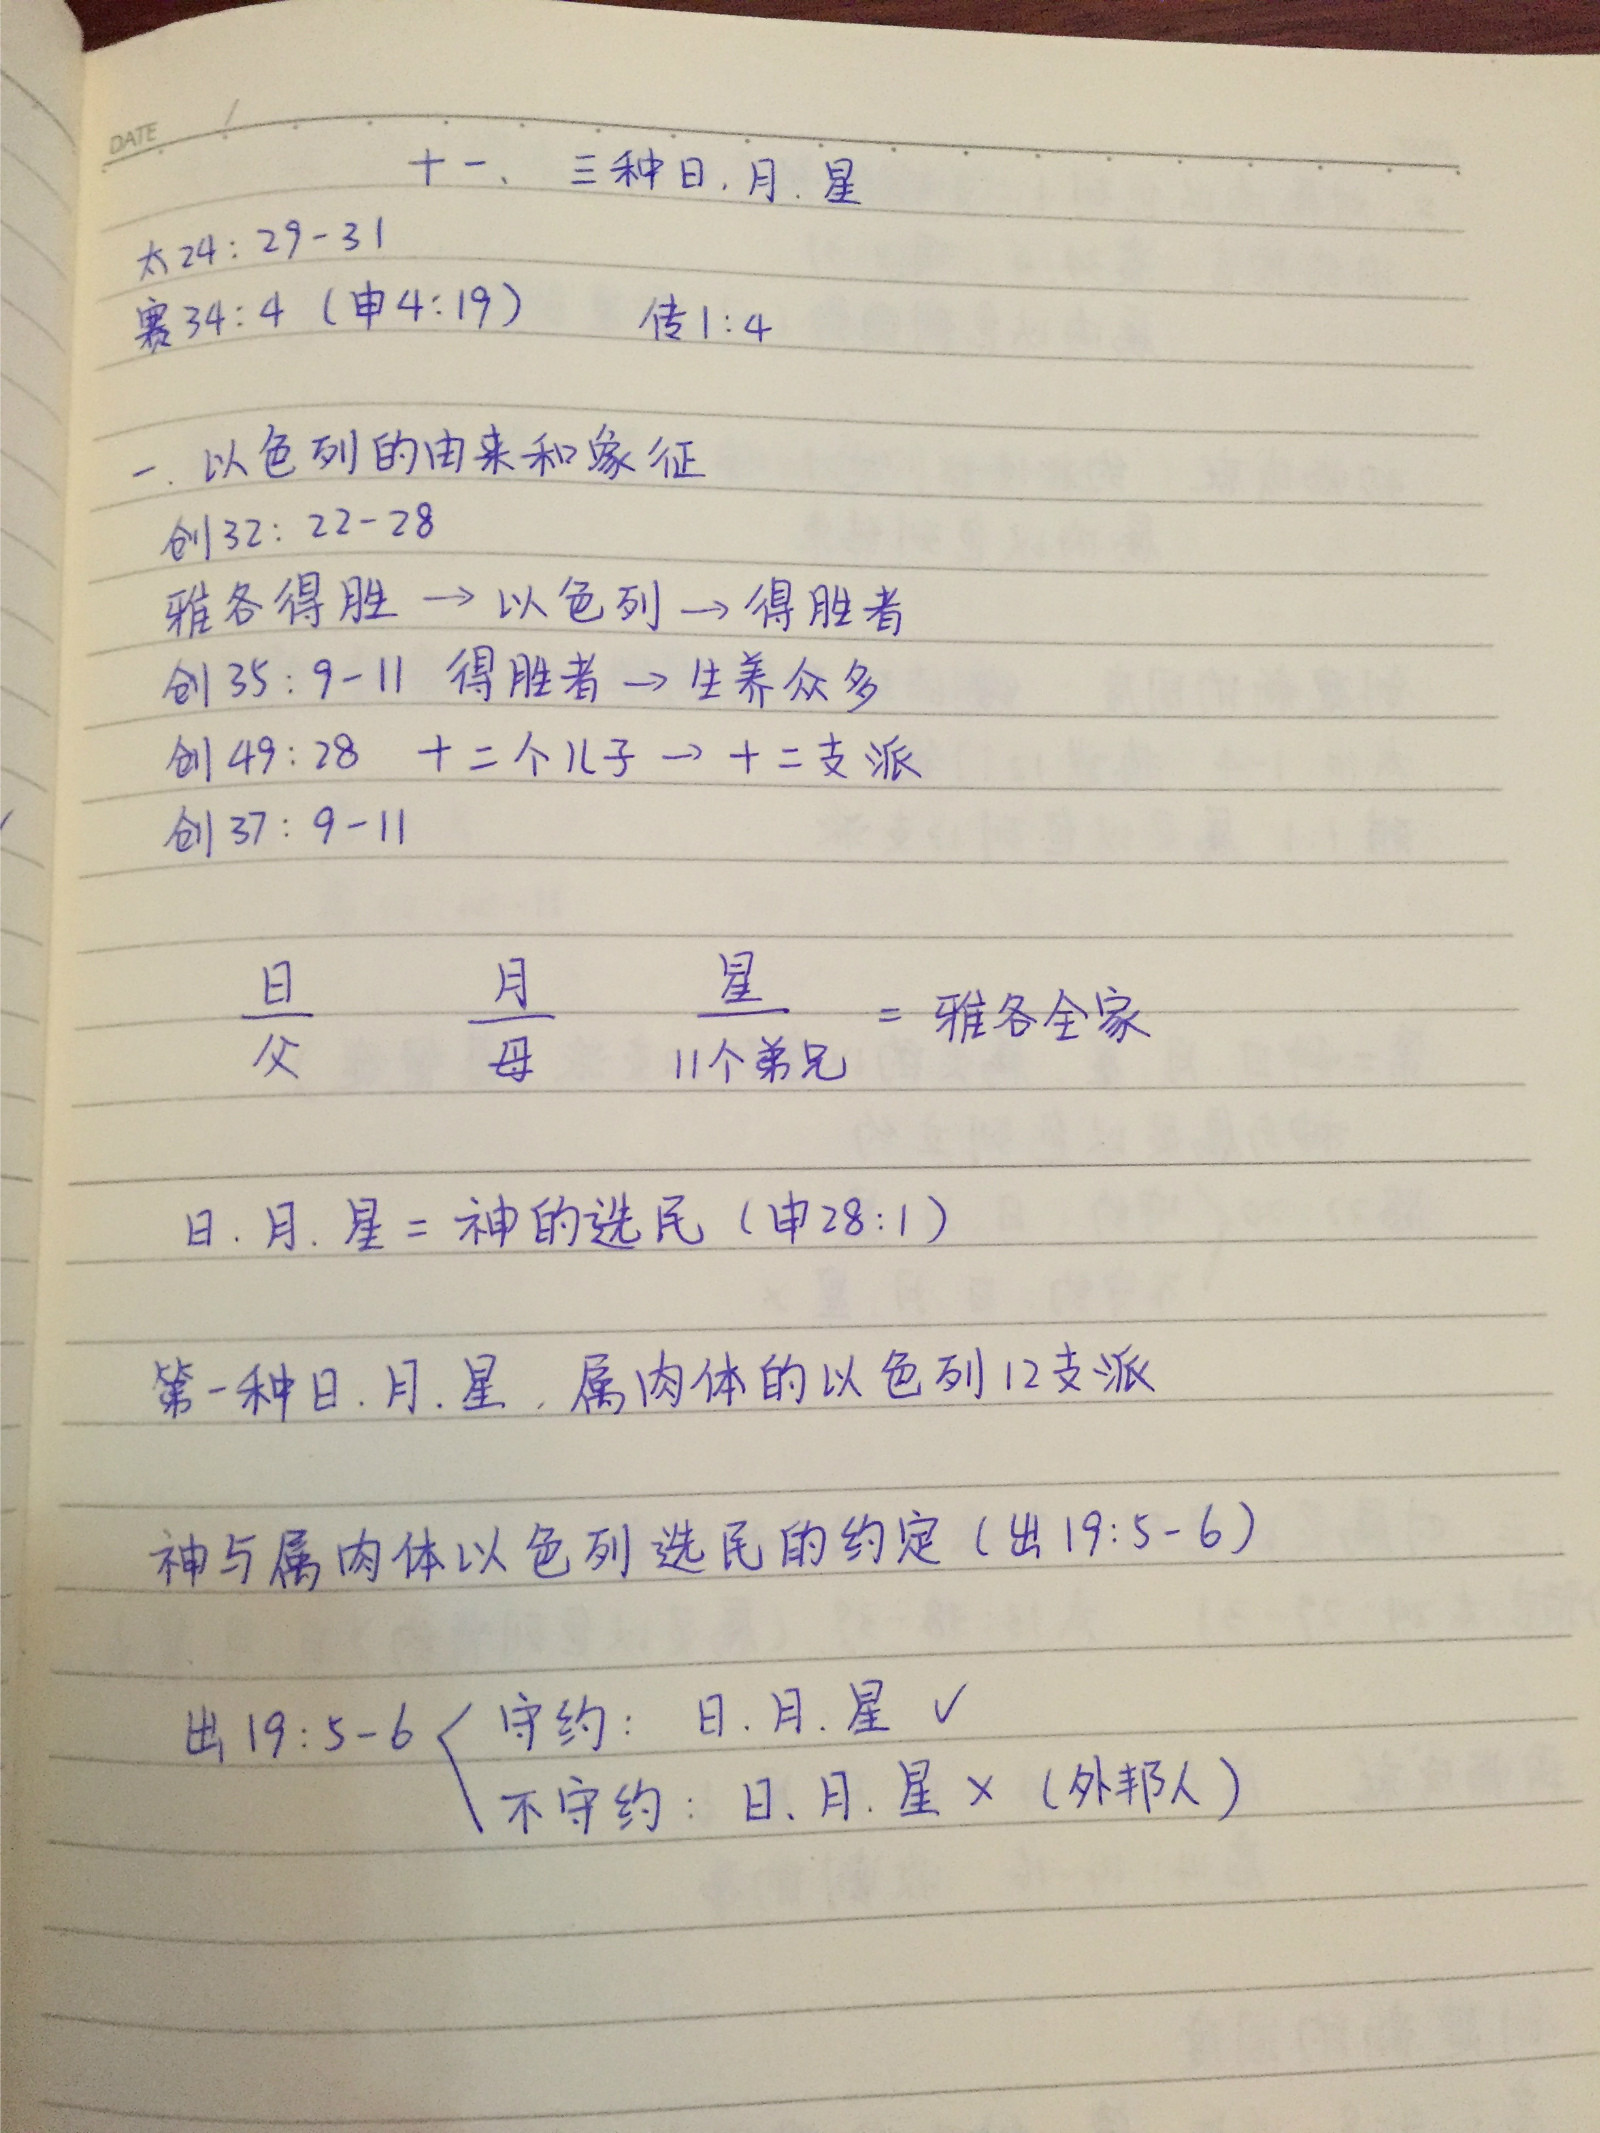 DATE /
十一、三种日.月.星
太24:29-31
赛34:4 (申4:19) 传1:4
一.以色列的由来和象征
创32:22-28
雅各得胜→以色列→得胜者
创35:9-11 得胜者→生养众多
创49:28 十二个儿子→十二支派
创37:9-11
日 月 星
父 母 11个弟兄 = 雅各全家
日.月.星=神的选民(申28:1)
第一种日.月.星,属肉体的以色列12支派
神与属肉体以色列选民的约定(出19:5-6)
出19:5-6 守约: 日.月.星 ✓
不守约: 日、月.星 × (外邦人)